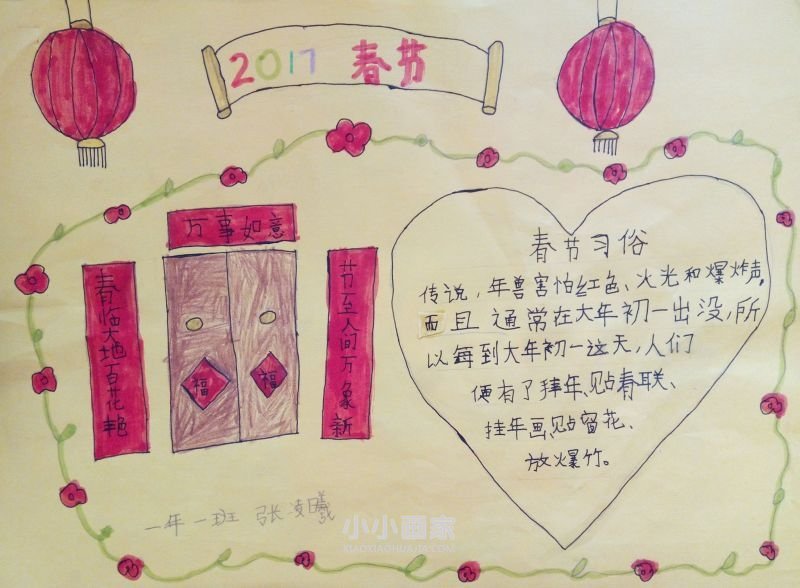 2017 春节
万事如意
春临大地百花艳
福
福
节至人间万象新
春节习俗
传说，年兽害怕红色、火光和爆炸声，
而且通常在大年初一出没，所
以每到大年初一这天，人们
便有了拜年、贴春联、
挂年画、贴窗花、
放爆竹。
一年一班 张凌曦
小小画家
XIAOXIAOHUAJIA.COM